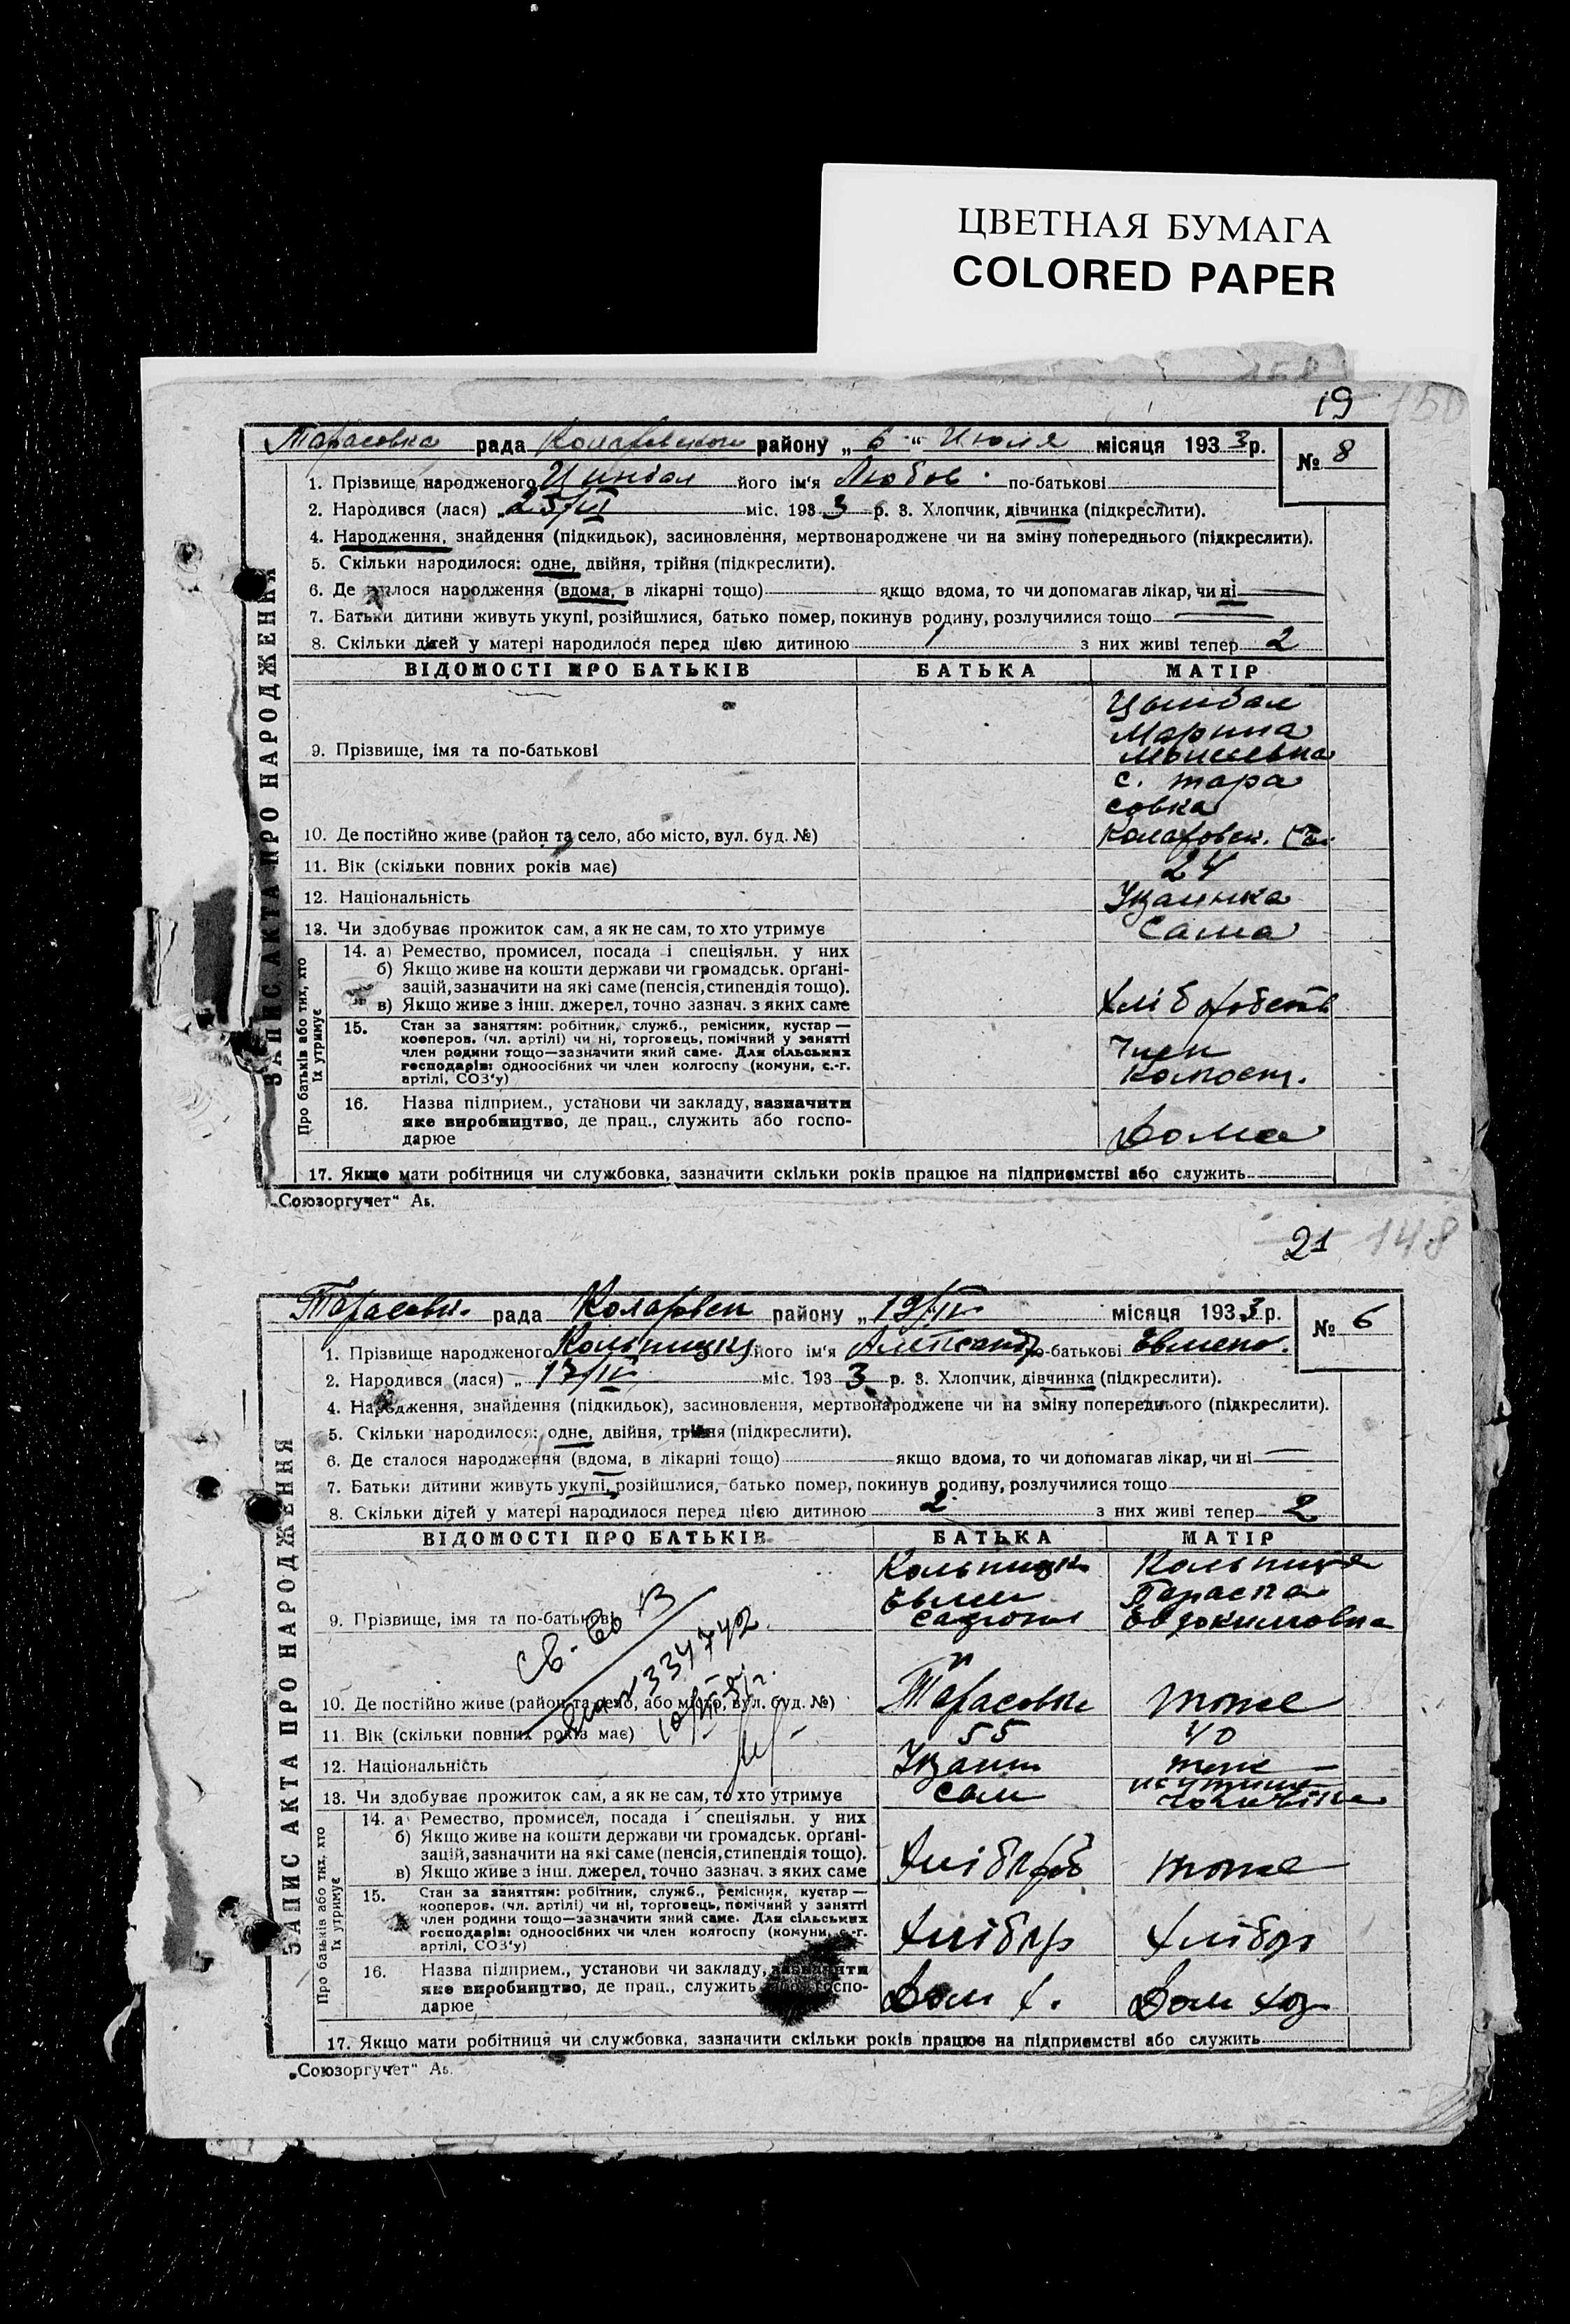 ЦВЕТНАЯ БУМАГА
COLORED PAPER
158
19 150
Тарасовка рада Коларовского району „ 6 “ Июля місяця 1933 р.
№ 8
1. Прізвище народженого Цинбал його ім'я Любов по-батькові
2. Народився (лася) „ 25/VI міс. 1933 р. 3. Хлопчик, дівчинка (підкреслити).
4. Народження, знайдення (підкидьок), засиновлення, мертвонароджене чи на зміну попереднього (підкреслити).
5. Скільки народилося: одне, двійня, трійня (підкреслити).
6. Де сталося народження (вдома, в лікарні тощо) якщо вдома, то чи допомагав лікар, чи ні
7. Батьки дитини живуть укупі, розійшлися, батько помер, покинув родину, розлучилися тощо
8. Скільки дітей у матері народилося перед цією дитиною 1 з них живі тепер 2
ВІДОМОСТІ ПРО БАТЬКІВ БАТЬКА МАТІР
Цынбал
Марина
9. Прізвище, імя та по-батькові
с. тара
совка
10. Де постійно живе (район та село, або місто, вул. буд. №) Коларовск.
11. Вік (скільки повних років має) 24
12. Національність Украинка
13. Чи здобуває прожиток сам, а як не сам, то хто утримує Сама
14. а) Ремество, промисел, посада і спеціяльн. у них
б) Якщо живе на кошти держави чи громадськ. орґані-
зацій, зазначити на які саме (пенсія, стипендія тощо).
в) Якщо живе з інш. джерел, точно зазнач. з яких саме
15. Стан за заняттям: робітник, служб., ремісник, кустар —
кооперов. (чл. артілі) чи ні, торговець, помічний у занятті
член родини тощо—зазначити який саме. Для сільських
господарів: одноосібних чи член колгоспу (комуни, с.-г.
артілі, СОЗ'у)
Член
16. Назва підприєм., установи чи закладу, зазначити
яке виробництво, де прац., служить або госпо-
дарює
Дома
17. Якщо мати робітниця чи службовка, зазначити скільки років працює на підприємстві або служить
Про батьків або тих, хто
їх утримує
ЗАПИС АКТА ПРО НАРОДЖЕННЯ
„Союзоргучет“ Ав.
21 148
рада Коларовск району „ 19/IV місяця 1933 р.
№ 6
1. Прізвище народженого його ім'я Александр по-батькові Евмено.
2. Народився (лася) „ 17/IV міс. 1933 р. 3. Хлопчик, дівчинка (підкреслити).
4. Народження, знайдення (підкидьок), засиновлення, мертвонароджене чи на зміну попереднього (підкреслити).
5. Скільки народилося: одне, двійня, трійня (підкреслити).
6. Де сталося народження (вдома, в лікарні тощо) якщо вдома, то чи допомагав лікар, чи ні
7. Батьки дитини живуть укупі, розійшлися, батько помер, покинув родину, розлучилися тощо
8. Скільки дітей у матері народилося перед цією дитиною 2 з них живі тепер 2
ВІДОМОСТІ ПРО БАТЬКІВ БАТЬКА МАТІР
9. Прізвище, імя та по-батькові Евдокимовна
10. Де постійно живе (район та село, або місто, вул. буд. №) тоже
11. Вік (скільки повних років має) 55 40
12. Національність
13. Чи здобуває прожиток сам, а як не сам, то хто утримує сам
14. а) Ремество, промисел, посада і спеціяльн. у них
б) Якщо живе на кошти держави чи громадськ. орґані-
зацій, зазначити на які саме (пенсія, стипендія тощо).
в) Якщо живе з інш. джерел, точно зазнач. з яких саме тоже
15. Стан за заняттям: робітник, служб., ремісник, кустар —
кооперов. (чл. артілі) чи ні, торговець, помічний у занятті
член родини тощо—зазначити який саме. Для сільських
господарів: одноосібних чи член колгоспу (комуни, с.-г.
артілі, СОЗ'у)
Хлібор Хлібор
16. Назва підприєм., установи чи закладу, зазначити
яке виробництво, де прац., служить або госпо-
дарює
Дом х. Дом хоз
17. Якщо мати робітниця чи службовка, зазначити скільки років працює на підприємстві або служить
Про батьків або тих, хто
їх утримує
ЗАПИС АКТА ПРО НАРОДЖЕННЯ
„Союзоргучет“ Ав.
Св-во
334742